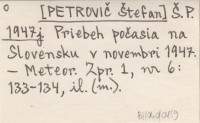 o [PETROVIČ Štefan] Š. P.
1947j Priebeh počasia na
Slovensku v novembri 1947.
– Meteor. Zpr. 1, nr 6:
133-134, il. (m.).